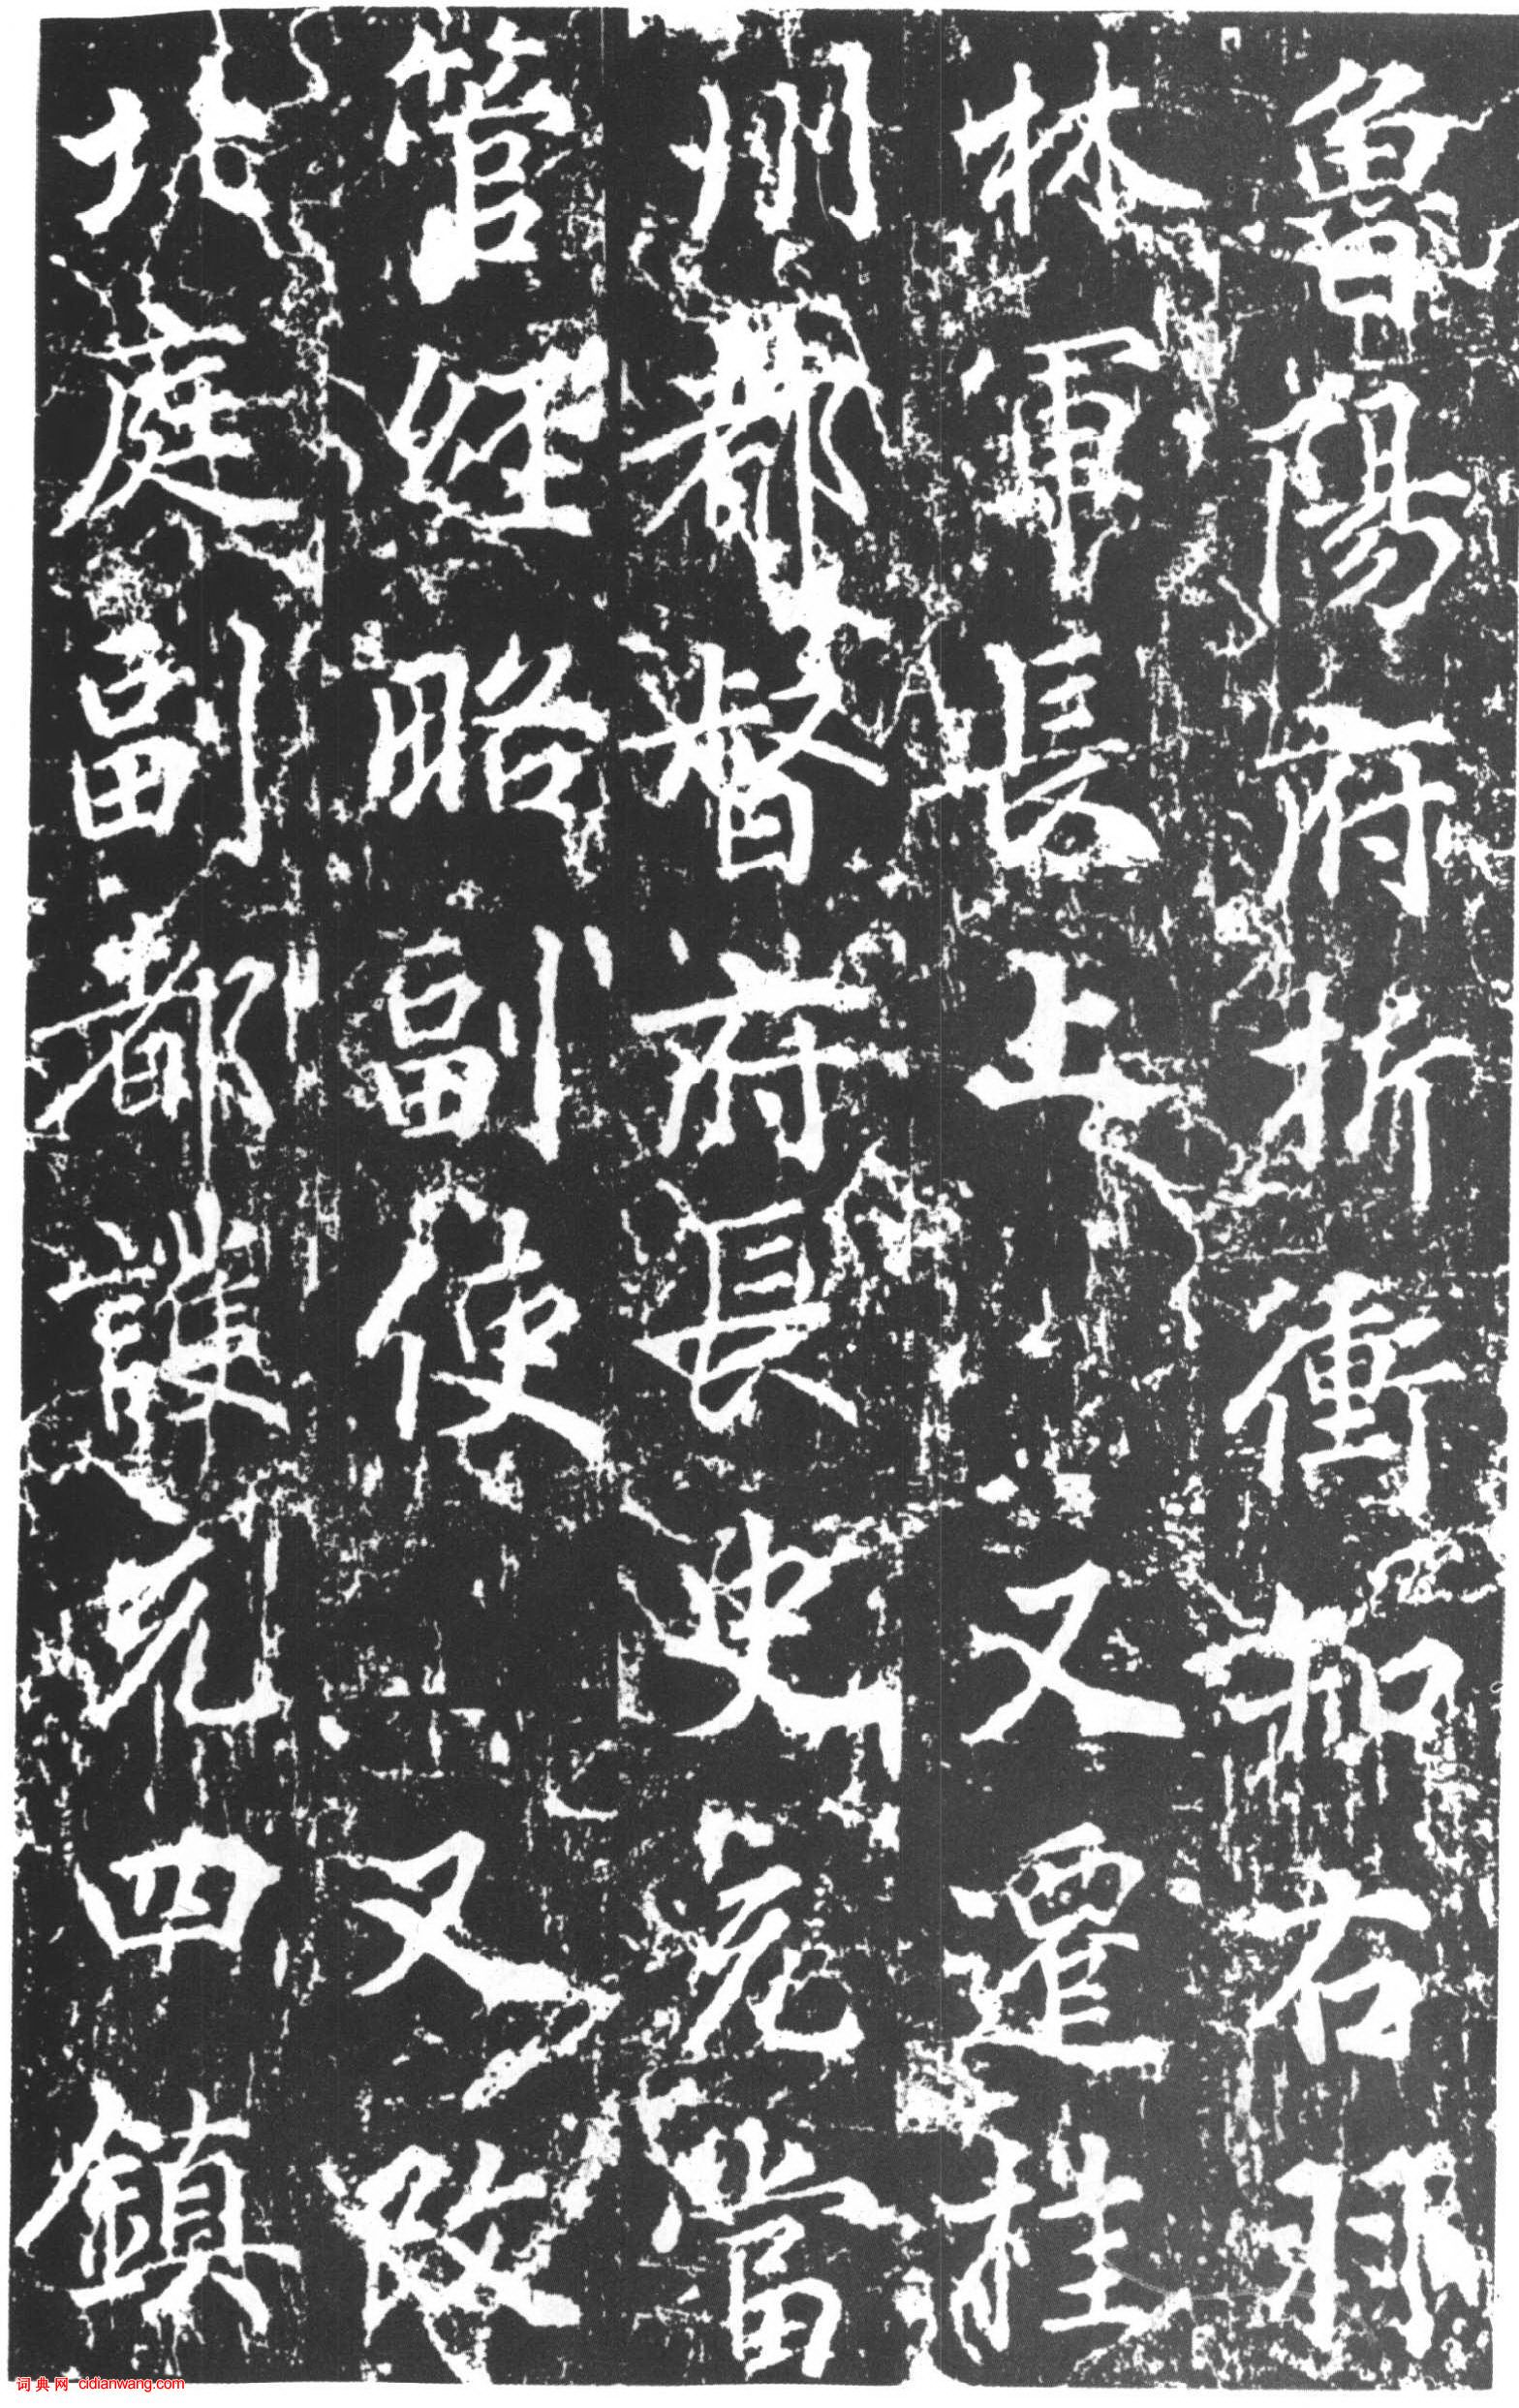 魯陽府折衝加右羽
林軍長上又遷桂
州都督府長史兼當
管經略副使又改
北庭副都護充四鎮
词典网 cidianwang.com